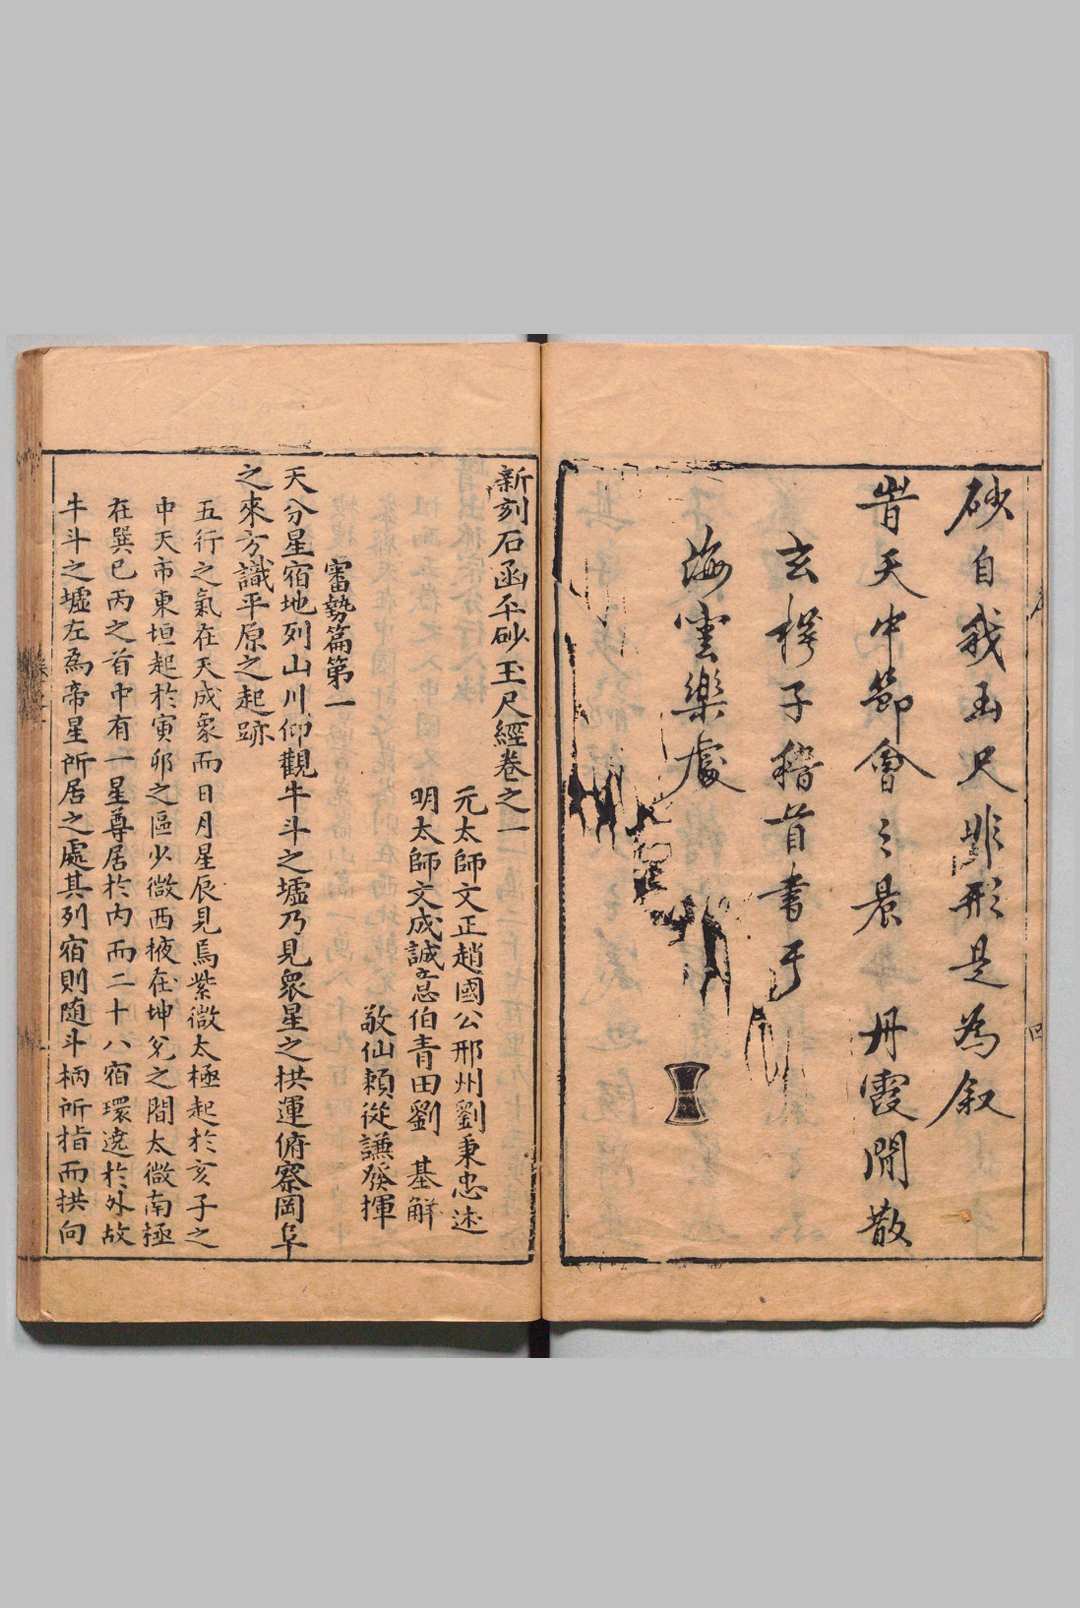 砂自我玉尺非形是為叙
旹天中節會之晨丹霞閒散
玄樗子稽首書于
海雲樂處
新刻石函平砂玉尺經卷之一
元太師文正趙國公邢州劉秉忠述
明太師文成誠意伯青田劉　基解
敬仙賴從謙發揮
審勢篇第一
天分星宿地列山川仰觀牛斗之墟乃見衆星之拱運俯察岡阜
之來方識平原之起跡
五行之氣在天成象而日月星辰見焉紫微太極起於亥子之
中天市東垣起於寅卯之區少微西掖在坤兌之間太微南極
在巽巳丙之首中有一星尊居於內而二十八宿環遶於外故
牛斗之墟左為帝星所居之處其列宿則随斗柄所指而拱向